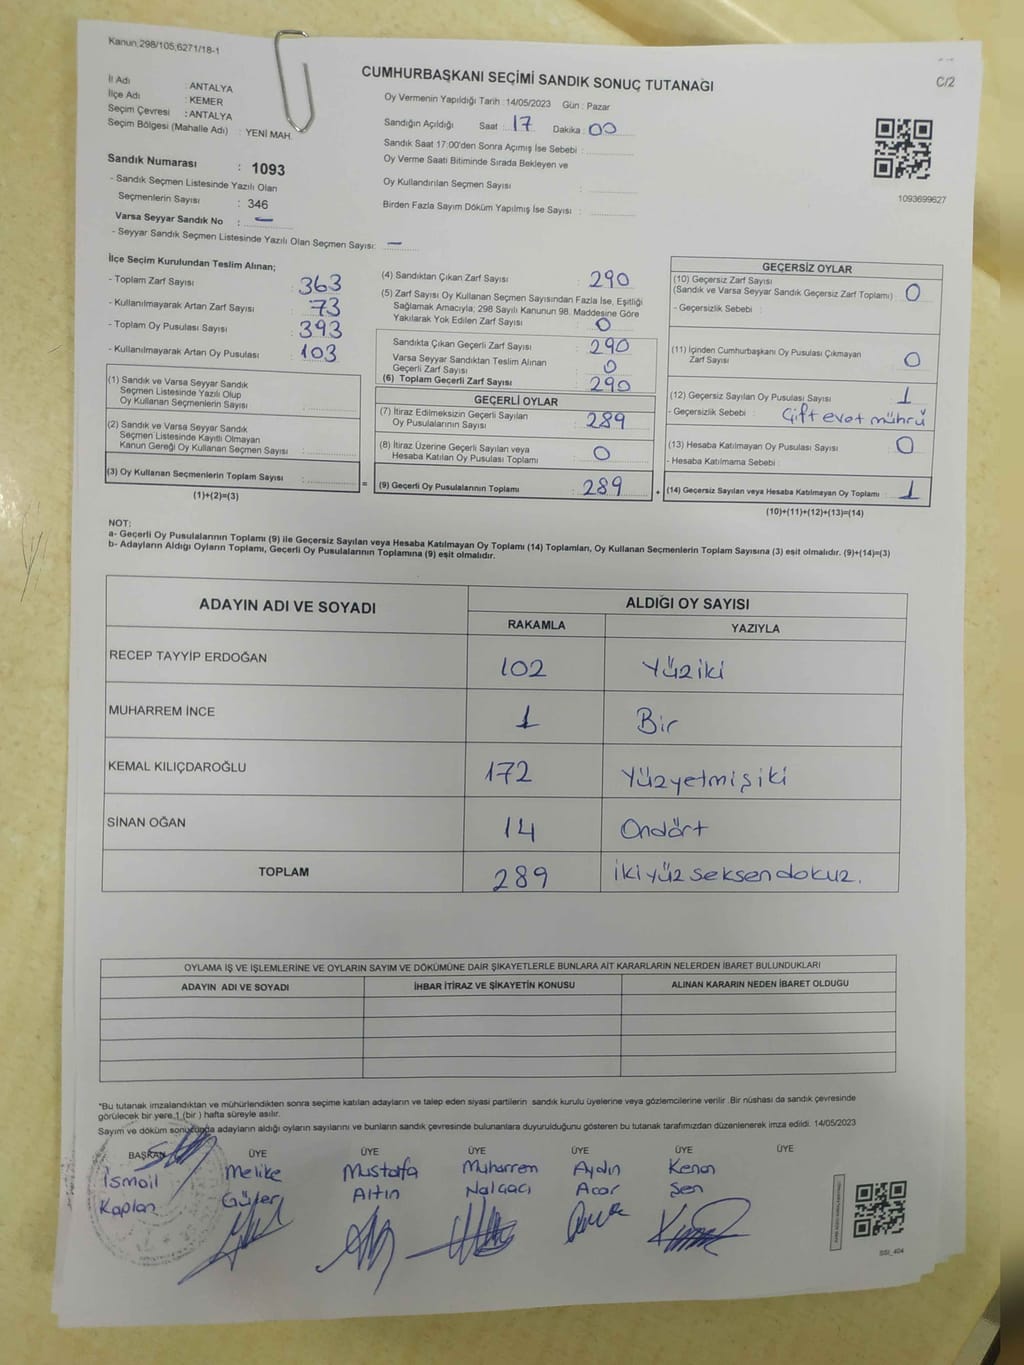 Kanun,298/105,6271/18-1
CUMHURBAŞKANI SEÇİMİ SANDIK SONUÇ TUTANAĞI
C/2
İl Adı : ANTALYA
İlçe Adı : KEMER
Seçim Çevresi : ANTALYA
Seçim Bölgesi (Mahalle Adı) : YENİ MAH.
Oy Vermenin Yapıldığı Tarih : 14/05/2023 Gün : Pazar
Sandığın Açıldığı Saat : 17 Dakika : 00
Sandık Saat 17:00'den Sonra Açımış İse Sebebi :
Oy Verme Saati Bitiminde Sırada Bekleyen ve
Oy Kullandırılan Seçmen Sayısı :
Birden Fazla Sayım Döküm Yapılmış İse Sayısı :
1093699627
Sandık Numarası : 1093
- Sandık Seçmen Listesinde Yazılı Olan
Seçmenlerin Sayısı : 346
Varsa Seyyar Sandık No : —
- Seyyar Sandık Seçmen Listesinde Yazılı Olan Seçmen Sayısı: —
İlçe Seçim Kurulundan Teslim Alınan;
- Toplam Zarf Sayısı : 363
- Kullanılmayarak Artan Zarf Sayısı : 73
- Toplam Oy Pusulası Sayısı : 393
- Kullanılmayarak Artan Oy Pusulası : 103
(1) Sandık ve Varsa Seyyar Sandık
Seçmen Listesinde Yazılı Olup
Oy Kullanan Seçmenlerin Sayısı :
(2) Sandık ve Varsa Seyyar Sandık
Seçmen Listesinde Kayıtlı Olmayan
Kanun Gereği Oy Kullanan Seçmen Sayısı :
(3) Oy Kullanan Seçmenlerin Toplam Sayısı :
(1)+(2)=(3)
(4) Sandıktan Çıkan Zarf Sayısı : 290
(5) Zarf Sayısı Oy Kullanan Seçmen Sayısından Fazla İse, Eşitliği
Sağlamak Amacıyla; 298 Sayılı Kanunun 98. Maddesine Göre
Yakılarak Yok Edilen Zarf Sayısı : 0
Sandıkta Çıkan Geçerli Zarf Sayısı : 290
Varsa Seyyar Sandıktan Teslim Alınan
Geçerli Zarf Sayısı : 0
(6) Toplam Geçerli Zarf Sayısı : 290
GEÇERLİ OYLAR
(7) İtiraz Edilmeksizin Geçerli Sayılan
Oy Pusulalarının Sayısı : 289
(8) İtiraz Üzerine Geçerli Sayılan veya
Hesaba Katılan Oy Pusulası Toplamı : 0
= (9) Geçerli Oy Pusulalarının Toplamı : 289
GEÇERSİZ OYLAR
(10) Geçersiz Zarf Sayısı
(Sandık ve Varsa Seyyar Sandık Geçersiz Zarf Toplamı) : 0
- Geçersizlik Sebebi :
(11) İçinden Cumhurbaşkanı Oy Pusulası Çıkmayan
Zarf Sayısı : 0
(12) Geçersiz Sayılan Oy Pusulası Sayısı : 1
- Geçersizlik Sebebi : Çift evet mührü
(13) Hesaba Katılmayan Oy Pusulası Sayısı : 0
- Hesaba Katılmama Sebebi :
+ (14) Geçersiz Sayılan veya Hesaba Katılmayan Oy Toplamı : 1
(10)+(11)+(12)+(13)=(14)
NOT:
a- Geçerli Oy Pusulalarının Toplamı (9) ile Geçersiz Sayılan veya Hesaba Katılmayan Oy Toplamı (14) Toplamları, Oy Kullanan Seçmenlerin Toplam Sayısına (3) eşit olmalıdır. (9)+(14)=(3)
b- Adayların Aldığı Oyların Toplamı, Geçerli Oy Pusulalarının Toplamına (9) eşit olmalıdır.
ADAYIN ADI VE SOYADI ALDIĞI OY SAYISI
RAKAMLA YAZIYLA
RECEP TAYYİP ERDOĞAN 102 Yüziki
MUHARREM İNCE 1 Bir
KEMAL KILIÇDAROĞLU 172 Yüzyetmişiki
SİNAN OĞAN 14 Ondört
TOPLAM 289 İkiyüz seksendokuz.
OYLAMA İŞ VE İŞLEMLERİNE VE OYLARIN SAYIM VE DÖKÜMÜNE DAİR ŞİKAYETLERLE BUNLARA AİT KARARLARIN NELERDEN İBARET BULUNDUKLARI
ADAYIN ADI VE SOYADI İHBAR İTİRAZ VE ŞİKAYETİN KONUSU ALINAN KARARIN NEDEN İBARET OLDUĞU
*Bu tutanak imzalandıktan ve mühürlendikten sonra seçime katılan adayların ve talep eden siyasi partilerin sandık kurulu üyelerine veya gözlemcilerine verilir .Bir nüshası da sandık çevresinde
görülecek bir yere 1 (bir ) hafta süreyle asılır.
Sayım ve döküm sonucunda adayların aldığı oyların sayılarını ve bunların sandık çevresinde bulunanlara duyurulduğunu gösteren bu tutanak tarafımızdan düzenlenerek imza edildi. 14/05/2023
BAŞKAN ÜYE ÜYE ÜYE ÜYE ÜYE ÜYE
İsmail Melike Mustafa Muharrem Aydın Kenan
Kaplan Güler Altın Nalgacı Acar Şen
SSİ_404